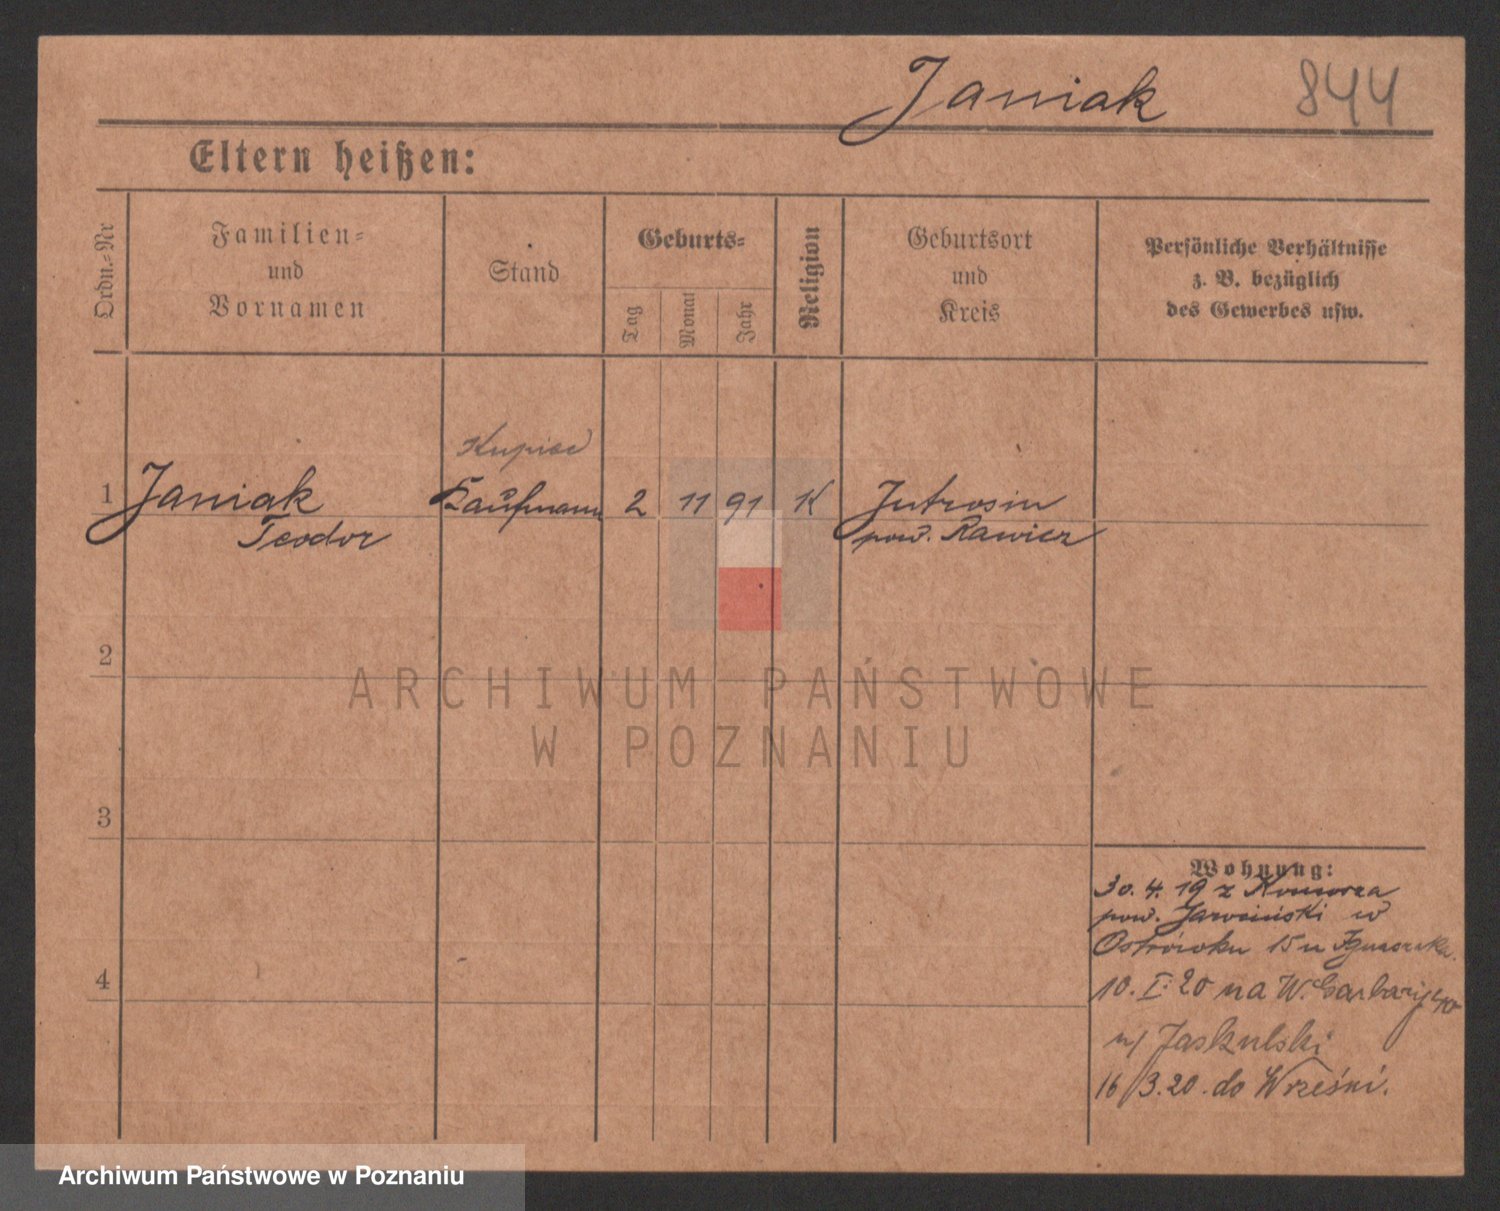 Janiak 844
Eltern heißen:
Ordn.-Nr
Familien-
und
Vornamen
Stand
Geburts-
Tag
Monat
Jahr
Religion
Geburtsort
und
Kreis
Persönliche Verhältnisse
z. B. bezüglich
des Gewerbes usw.
Kupiec
1 Janiak Kaufmann 2 11 91 K Jutrosin
Teodor pow. Rawicz
2
3
4
Wohnung:
30. 4. 19 z Komorza
pow. Jarociński w
Ostrówku 15 u
10. I. 20 na W. Garbary 40
u/ Jaskulski
16/3.20. do Wrześni.
ARCHIWUM PAŃSTWOWE
W POZNANIU
Archiwum Państwowe w Poznaniu